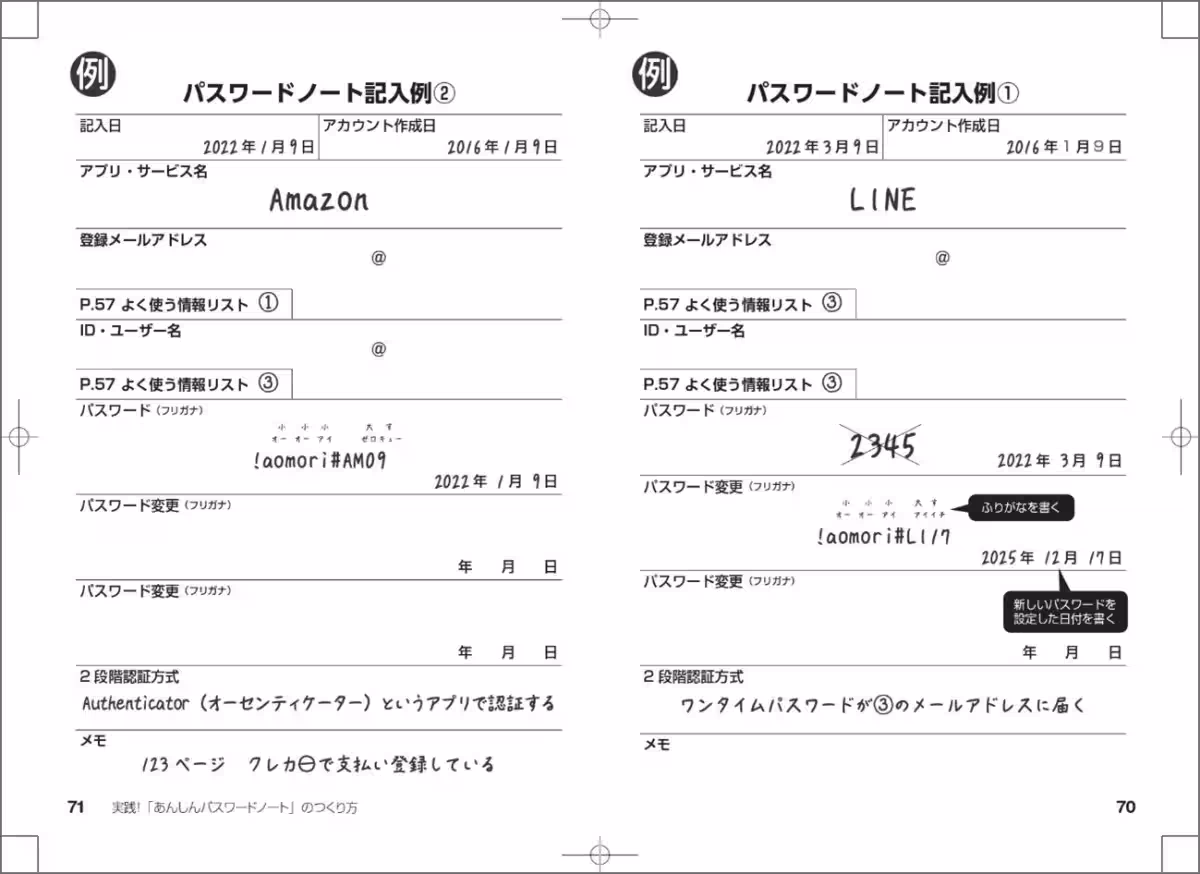 例
パスワードノート記入例①
記入日 アカウント作成日
2022年3月9日 2016年1月9日
アプリ・サービス名
LINE
登録メールアドレス
@
P.57 よく使う情報リスト ③
ID・ユーザー名
P.57 よく使う情報リスト ③
パスワード（フリガナ）
2345
2022年 3月 9日
パスワード変更（フリガナ）
小 小 小 大 す
オー オー アイ アイイチ
ふりがなを書く
!aomori#LI17
2025年 12月 17日
パスワード変更（フリガナ）
新しいパスワードを
設定した日付を書く
年 月 日
2段階認証方式
ワンタイムパスワードが③のメールアドレスに届く
メモ
70
例
パスワードノート記入例②
記入日 アカウント作成日
2022年1月9日 2016年1月9日
アプリ・サービス名
Amazon
登録メールアドレス
@
P.57 よく使う情報リスト ①
ID・ユーザー名
@
P.57 よく使う情報リスト ③
パスワード（フリガナ）
小 小 小 大 す
オー オー アイ ゼロキュー
!aomori#AM09
2022年 1月 9日
パスワード変更（フリガナ）
年 月 日
パスワード変更（フリガナ）
年 月 日
2段階認証方式
Authenticator（オーセンティケーター）というアプリで認証する
メモ
123ページ クレカ㊀で支払い登録している
71 実践!「あんしんパスワードノート」のつくり方